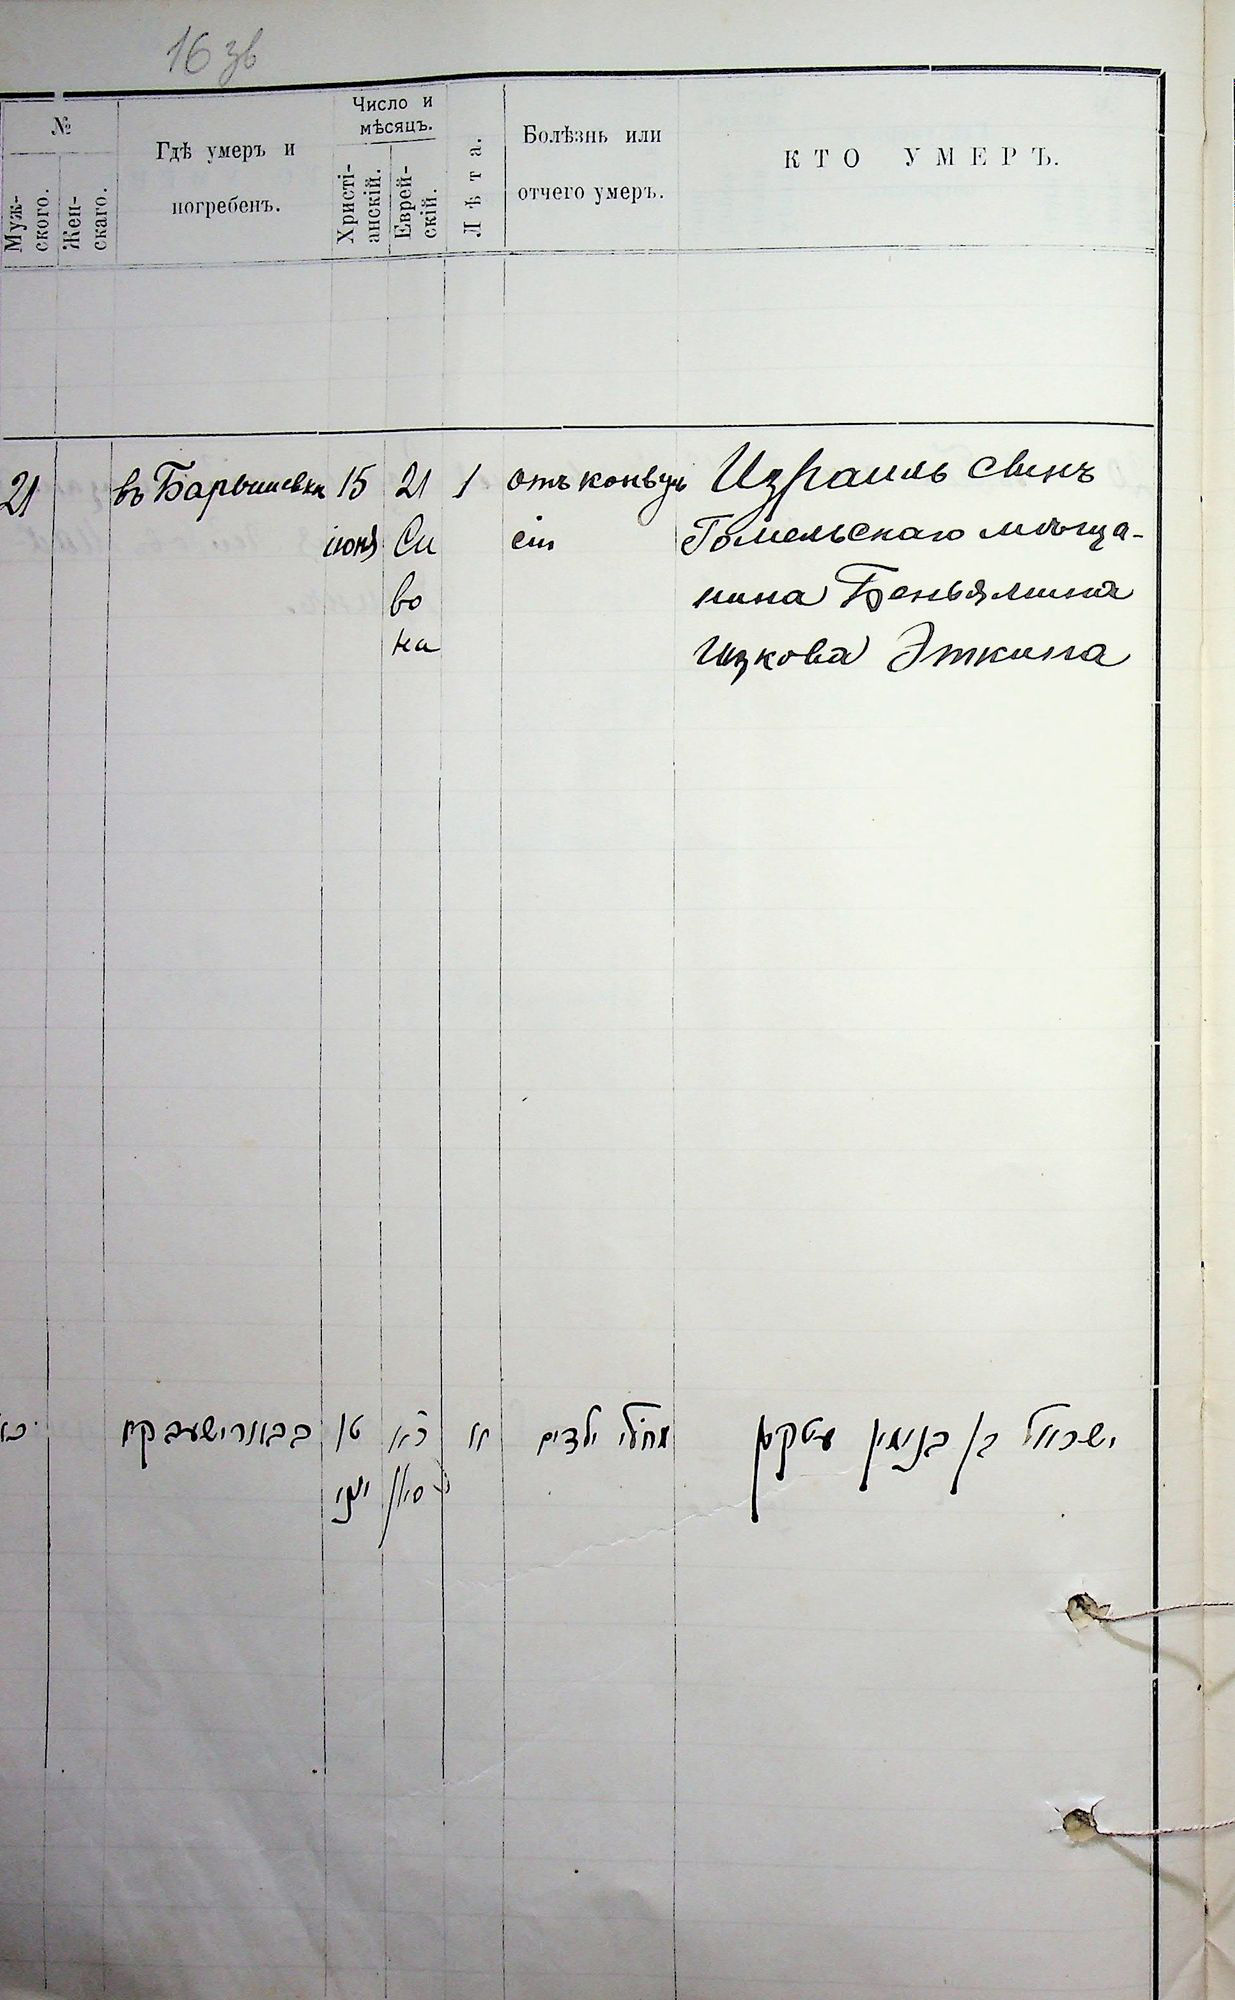 16 зв
№
Муж-
ского.
Жен-
скаго.
Гдѣ умеръ и
погребенъ.
Число и
мѣсяцъ.
Христі-
анскій.
Еврей-
скій.
Лѣта.
Болѣзнь или
отчего умеръ.
КТО УМЕРЪ.
21
въ Барышевки
15
іюня
21
Си
во
на
1
отъ конвуль
сіи
Израиль сынъ
Гомельскаго мѣща-
нина Беньямина
Ицкова Эткина
כא
בבארישעבקא
טו
יוני
כא
סיון
א
מחלי ילדים
ישראל בן בנימין עטקין